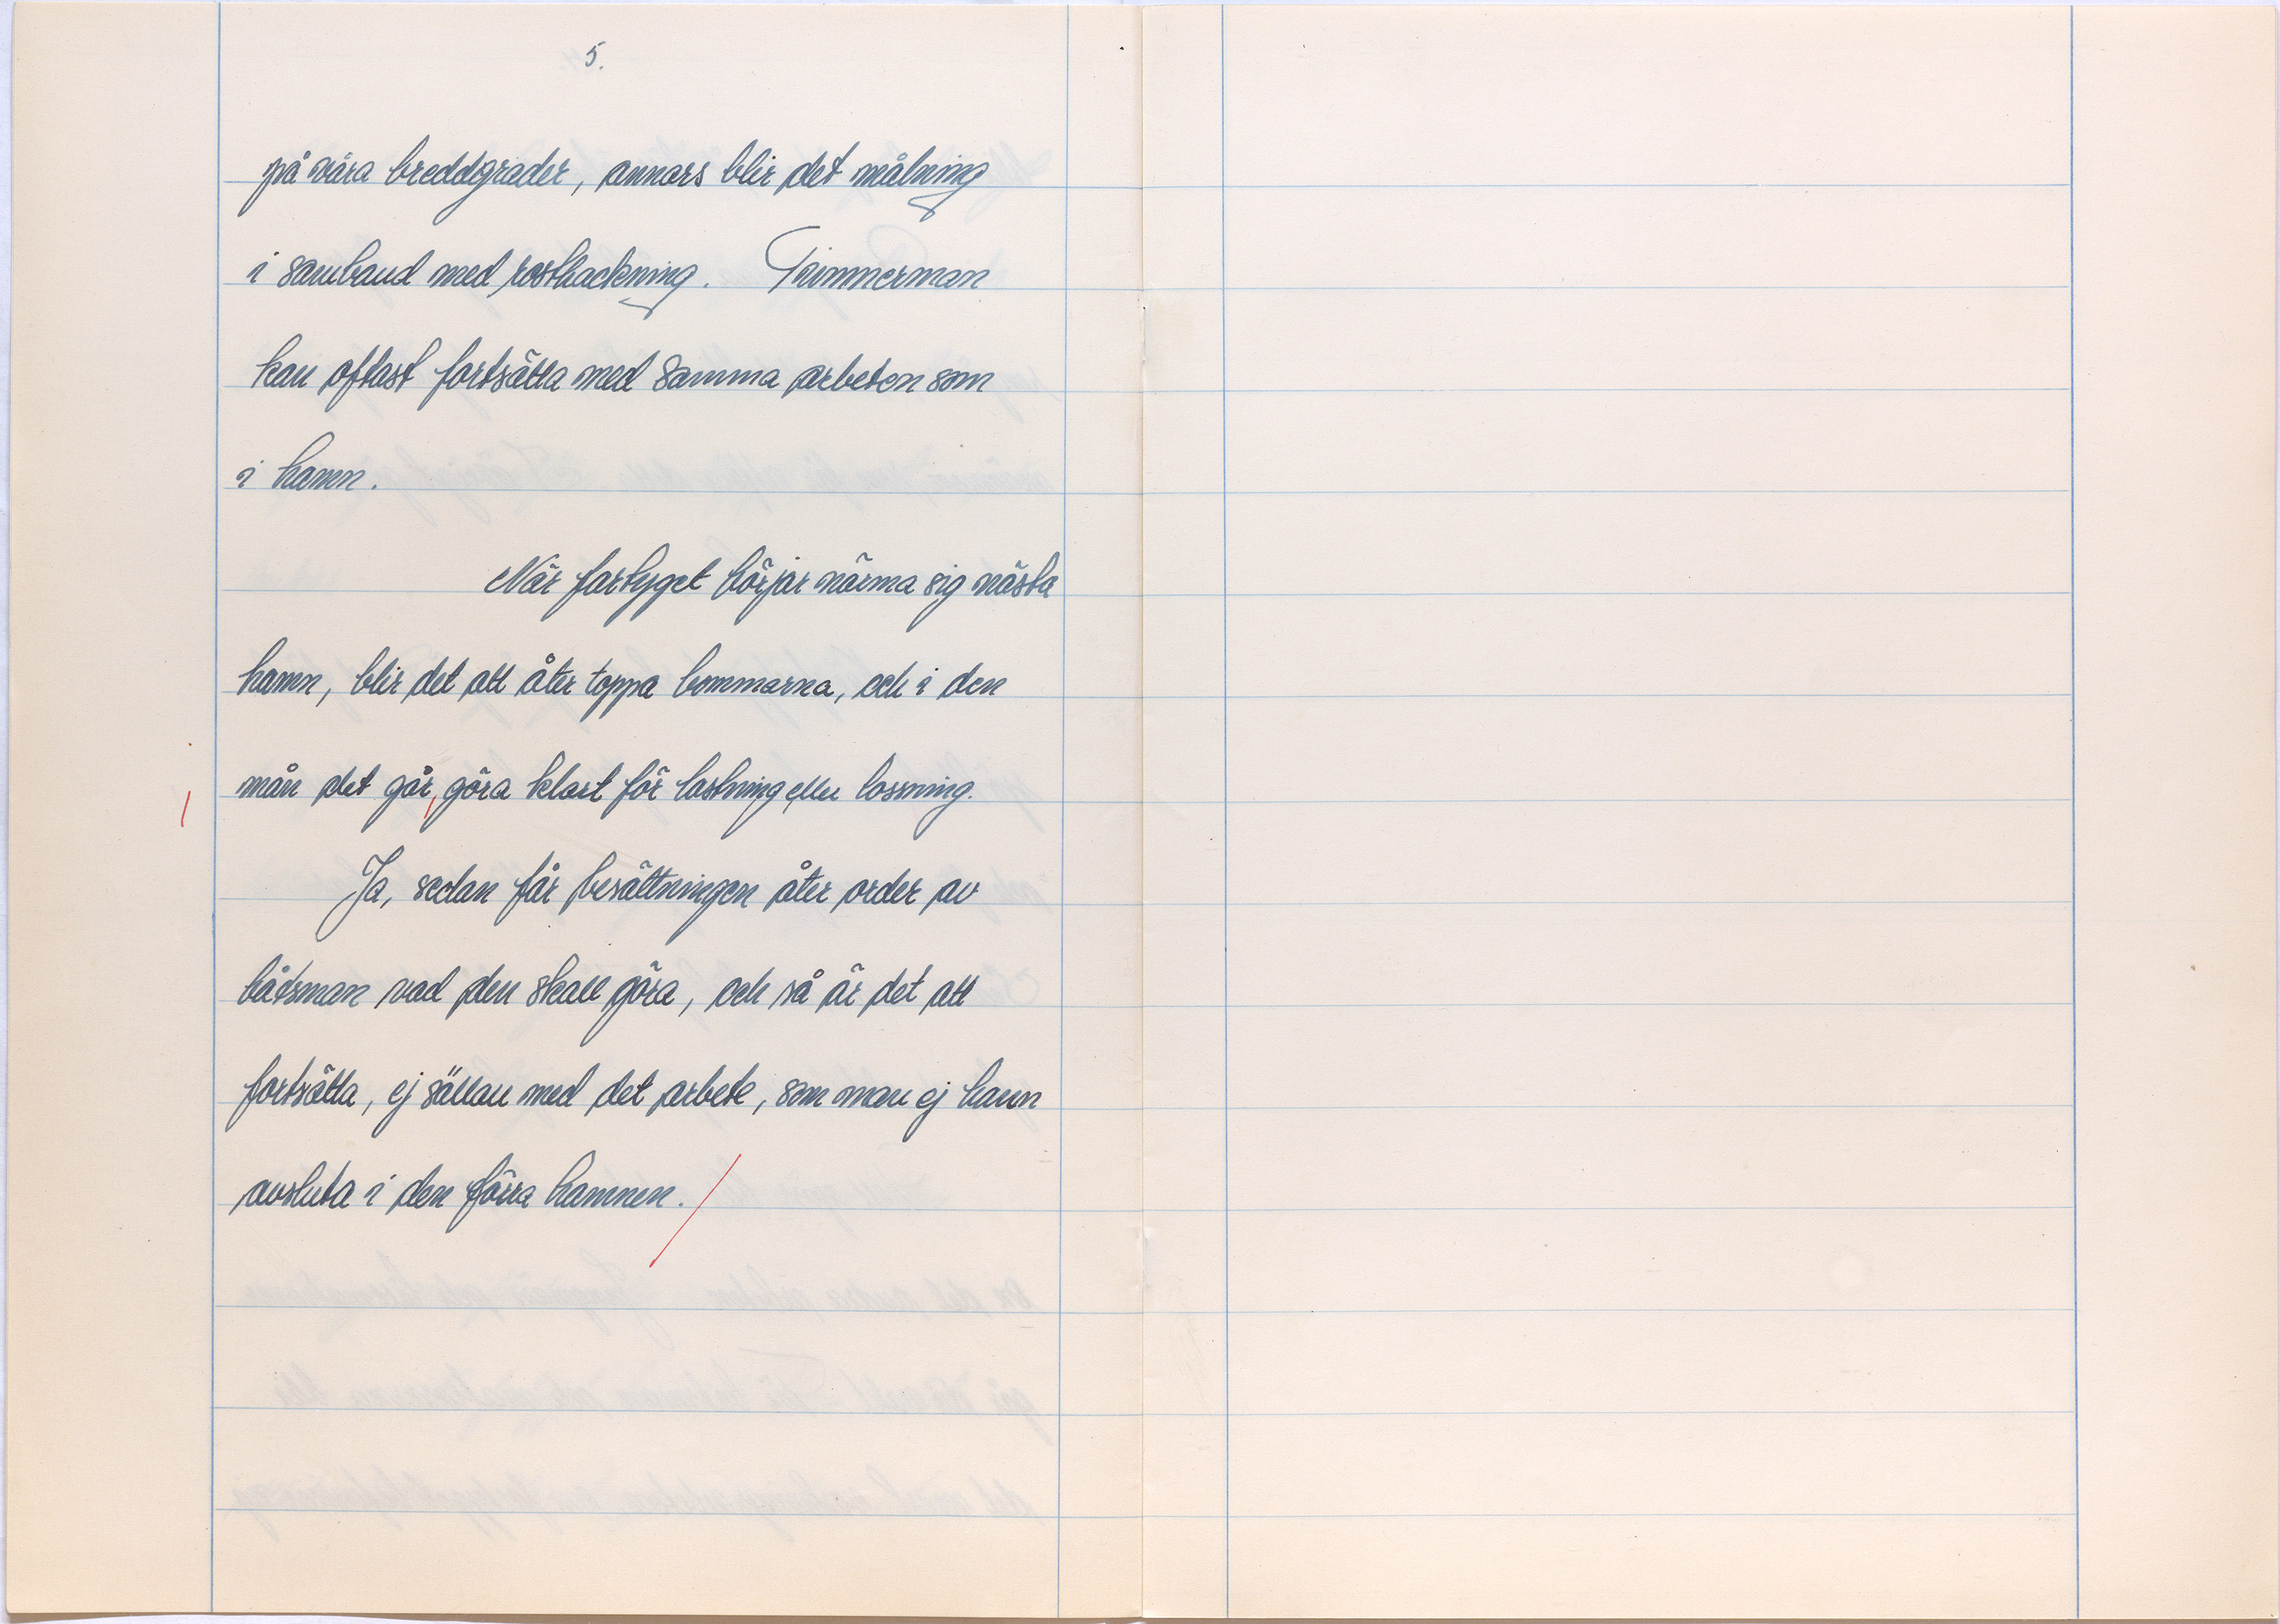 5.
på våra breddgrader, annars blir det målning
i samband med rosthackning. Timmerman
kan oftast fortsätta med samma arbeten som
i hamn.
När fartyget börjar närma sig nästa
hamn, blir det att åter toppa bommarna, och i den
mån det går, göra klart för lastning eller lossning.
Ja, sedan får besättningen åter order av
båtsman vad den skall göra, och så är det att
fortsätta, ej sällan med det arbete, som man ej hann
avsluta i den förra hamnen.